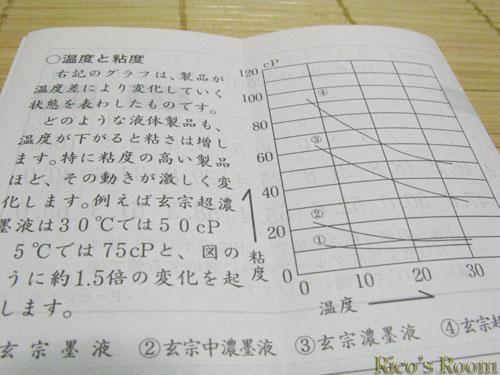 ○温度と粘度
右記のグラフは、製品が
温度差により変化していく
状態を表わしたものです。
どのような液体製品も、
温度が下がると粘さは増し
ます。特に粘度の高い製品
ほど、その動きが激しく変
化します。例えば玄宗超濃
墨液は30℃では50cP
5℃では75cPと、図の
うに約1.5倍の変化を起
します。
cP
120
100
80
60
40
20
0
④
③
②
①
粘度
0 10 20 30
温度
玄宗墨液 ②玄宗中濃墨液 ③玄宗濃墨液 ④玄宗超
Rico's Room